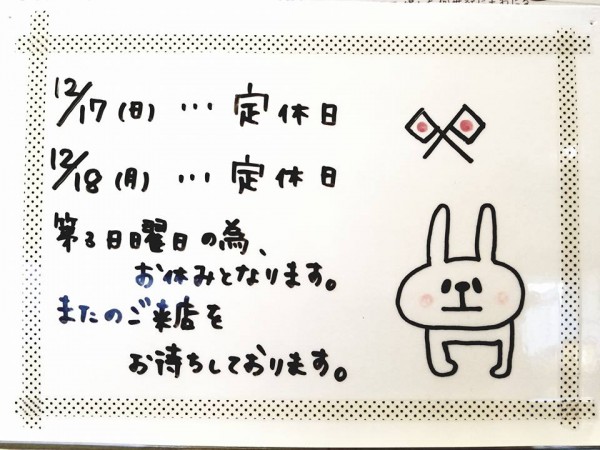 12/17(日)…定休日
12/18(月)…定休日
第3日曜日の為、
お休みとなります。
またのご来店を
お待ちしております。